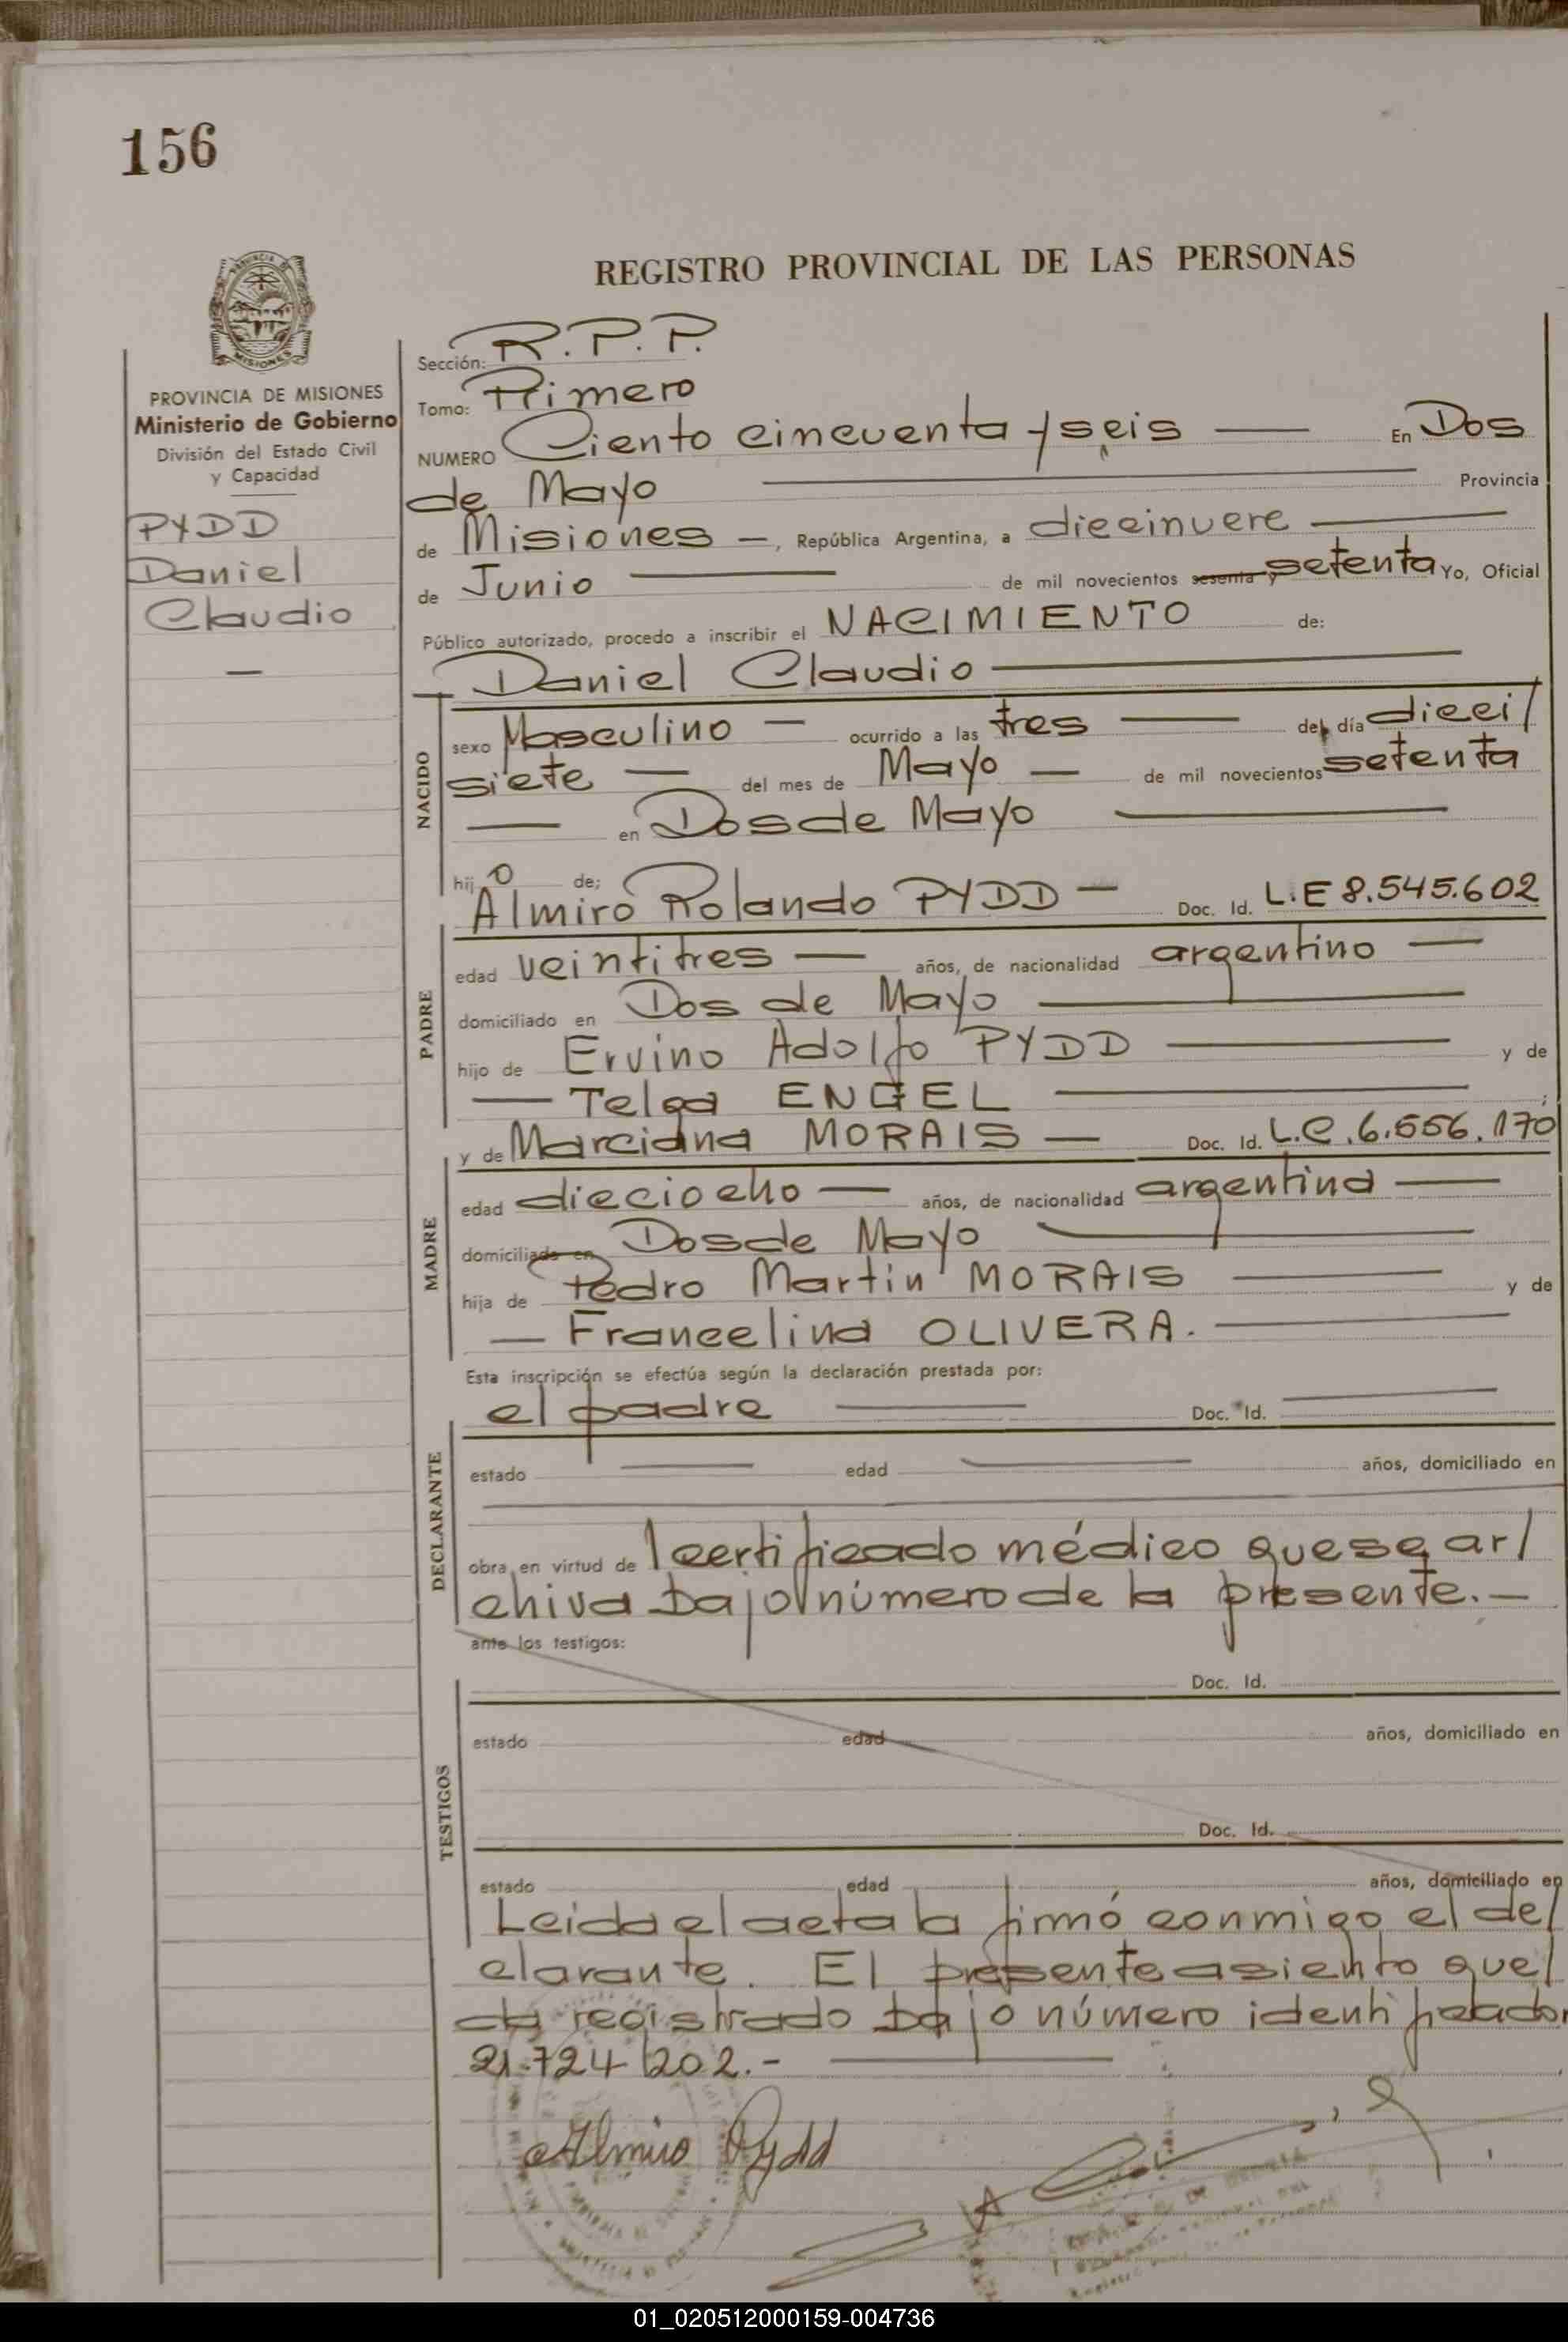 156
REGISTRO PROVINCIAL DE LAS PERSONAS
MISIONES
PROVINCIA DE MISIONES
Ministerio de Gobierno
División del Estado Civil
y Capacidad
PYDD
Daniel
Claudio
Sección: R.P.P.
Tomo: Primero
NUMERO Ciento cincuenta y seis — En Dos
de Mayo — Provincia
de Misiones —, República Argentina, a diecinueve —
de Junio — de mil novecientos sesenta y setenta Yo, Oficial
Público autorizado, procedo a inscribir el NACIMIENTO de:
Daniel Claudio —
NACIDO
sexo Masculino — ocurrido a las tres — del día dieci/
siete — del mes de Mayo — de mil novecientos setenta
— en Dos de Mayo —
hijo de;
Almiro Rolando PYDD — Doc. Id. L.E 8.545.602
PADRE
edad veintitres — años, de nacionalidad argentino —
domiciliado en Dos de Mayo —
hijo de Ervino Adolfo PYDD — y de
— Telga ENGEL — ;
y de Marciana MORAIS — Doc. Id. L.C.6.556.170
MADRE
edad dieciocho — años, de nacionalidad argentina —
domiciliado en Dos de Mayo —
hija de Pedro Martin MORAIS — y de
— Francelina OLIVERA. —
Esta inscripción se efectúa según la declaración prestada por:
el padre — Doc. Id. —
DECLARANTE
estado — edad — años, domiciliado en
obra en virtud de l certificado médico que se ar/
chiva bajo número de la presente. —
ante los testigos:
Doc. Id.
TESTIGOS
estado edad años, domiciliado en
Doc. Id.
estado edad años, domiciliado en
Leida el acta la firmó conmigo el de/
clarante. El presente asiento que/
da registrado bajo número identificador
21.724.202.- —
Almiro Pydd
01_020512000159-004736